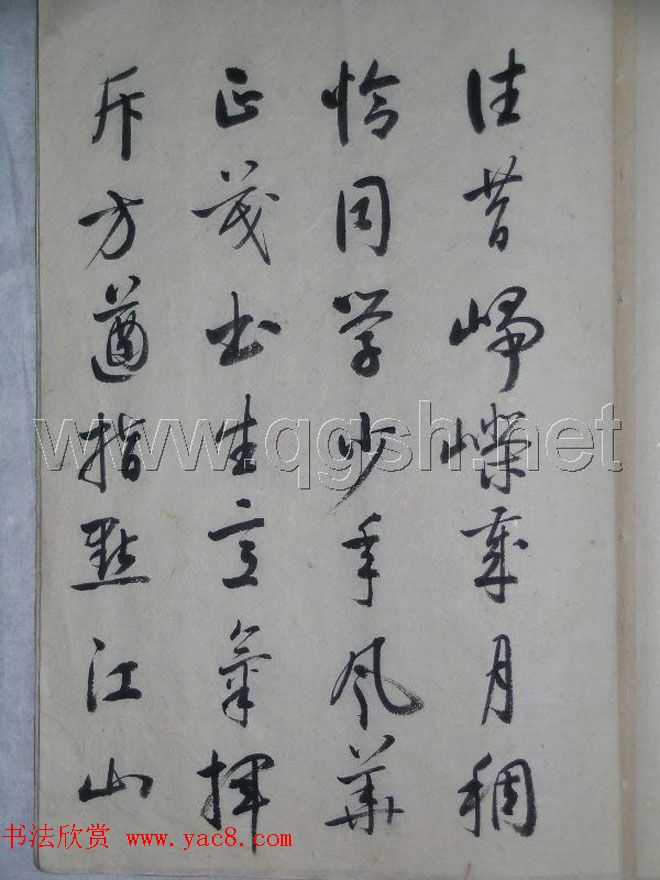 往昔崢嶸歲月稠
恰同学少年风華
正茂书生意氣揮
斥方遒指點江山
www.qgsh.net
书法欣赏 www.yac8.com